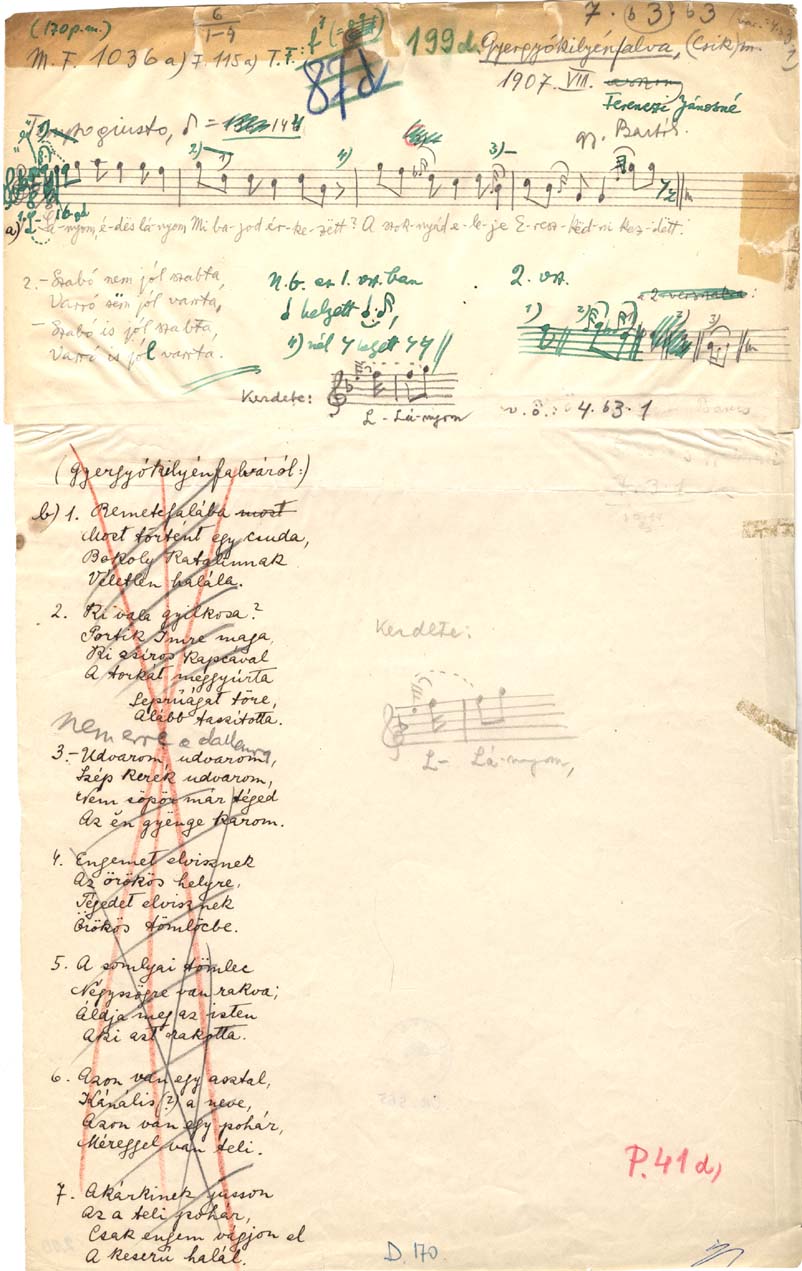 (170 p.m.)
6
1-4
7. b3. b3
M.F. 1036 a) F. 115a) T.F.:
199d.
Gyergyókilyénfalva, (Csik) m.
87d
1907. VIII.
Ferenczi Jánosné
gy. Bartók.
Tempo giusto, ♪ = 144
2) 1) 4) 3)
a) L-Lá-nyom, é-dös lá-nyom Mi ba-jod ér-ke-zëtt? A szok-nyád e-le-je E-resz-këd-ni kez-dëtt.
2. - Szabó nem jól szabta,
Varró sëm jól varrta,
- Szabó is jól szabta,
Varró is jól varrta.
N.b. az 1. vsz.ban
helyett
4) nél helyett
2. vsz.
a 2. versszakba:
1) 2) 3)
Kezdete:
L - Lá-nyom
v.ö.: 4. b3. 1
(Gyergyókilyénfalváról:)
b) 1. Remetefalába most
Most történt egy csuda,
Bakoly Katalinnak
Véletlen halála.
2. Ki vala gyilkosa?
Portik Imre maga,
Ki zsíros kapcával
A torkát mëggyúrta
Seprüágat töre,
Alább taszította.
nem erre a dallamra
3. - Udvarom, udvarom,
Szép kerek udvarom,
Nem söpör már téged
Az én gyënge karom.
4. Engemet elvisznek
Az örökös helyre,
Tégedet elvisznek
Örökös tömlöcbe.
5. A somlyai tömlec
Négyszögre van rakva;
Áldja meg az isten
Aki azt rakatta.
6. Azon van egy asztal,
Kánális (?) a neve,
Azon van egy pohár,
Méreggel van teli.
7. Akárkinek jusson
Az a teli pohár,
Csak engem vágjon el
A keserü halál.
Kezdete:
L- Lá-nyom,
P. 41 d,
D. 170.